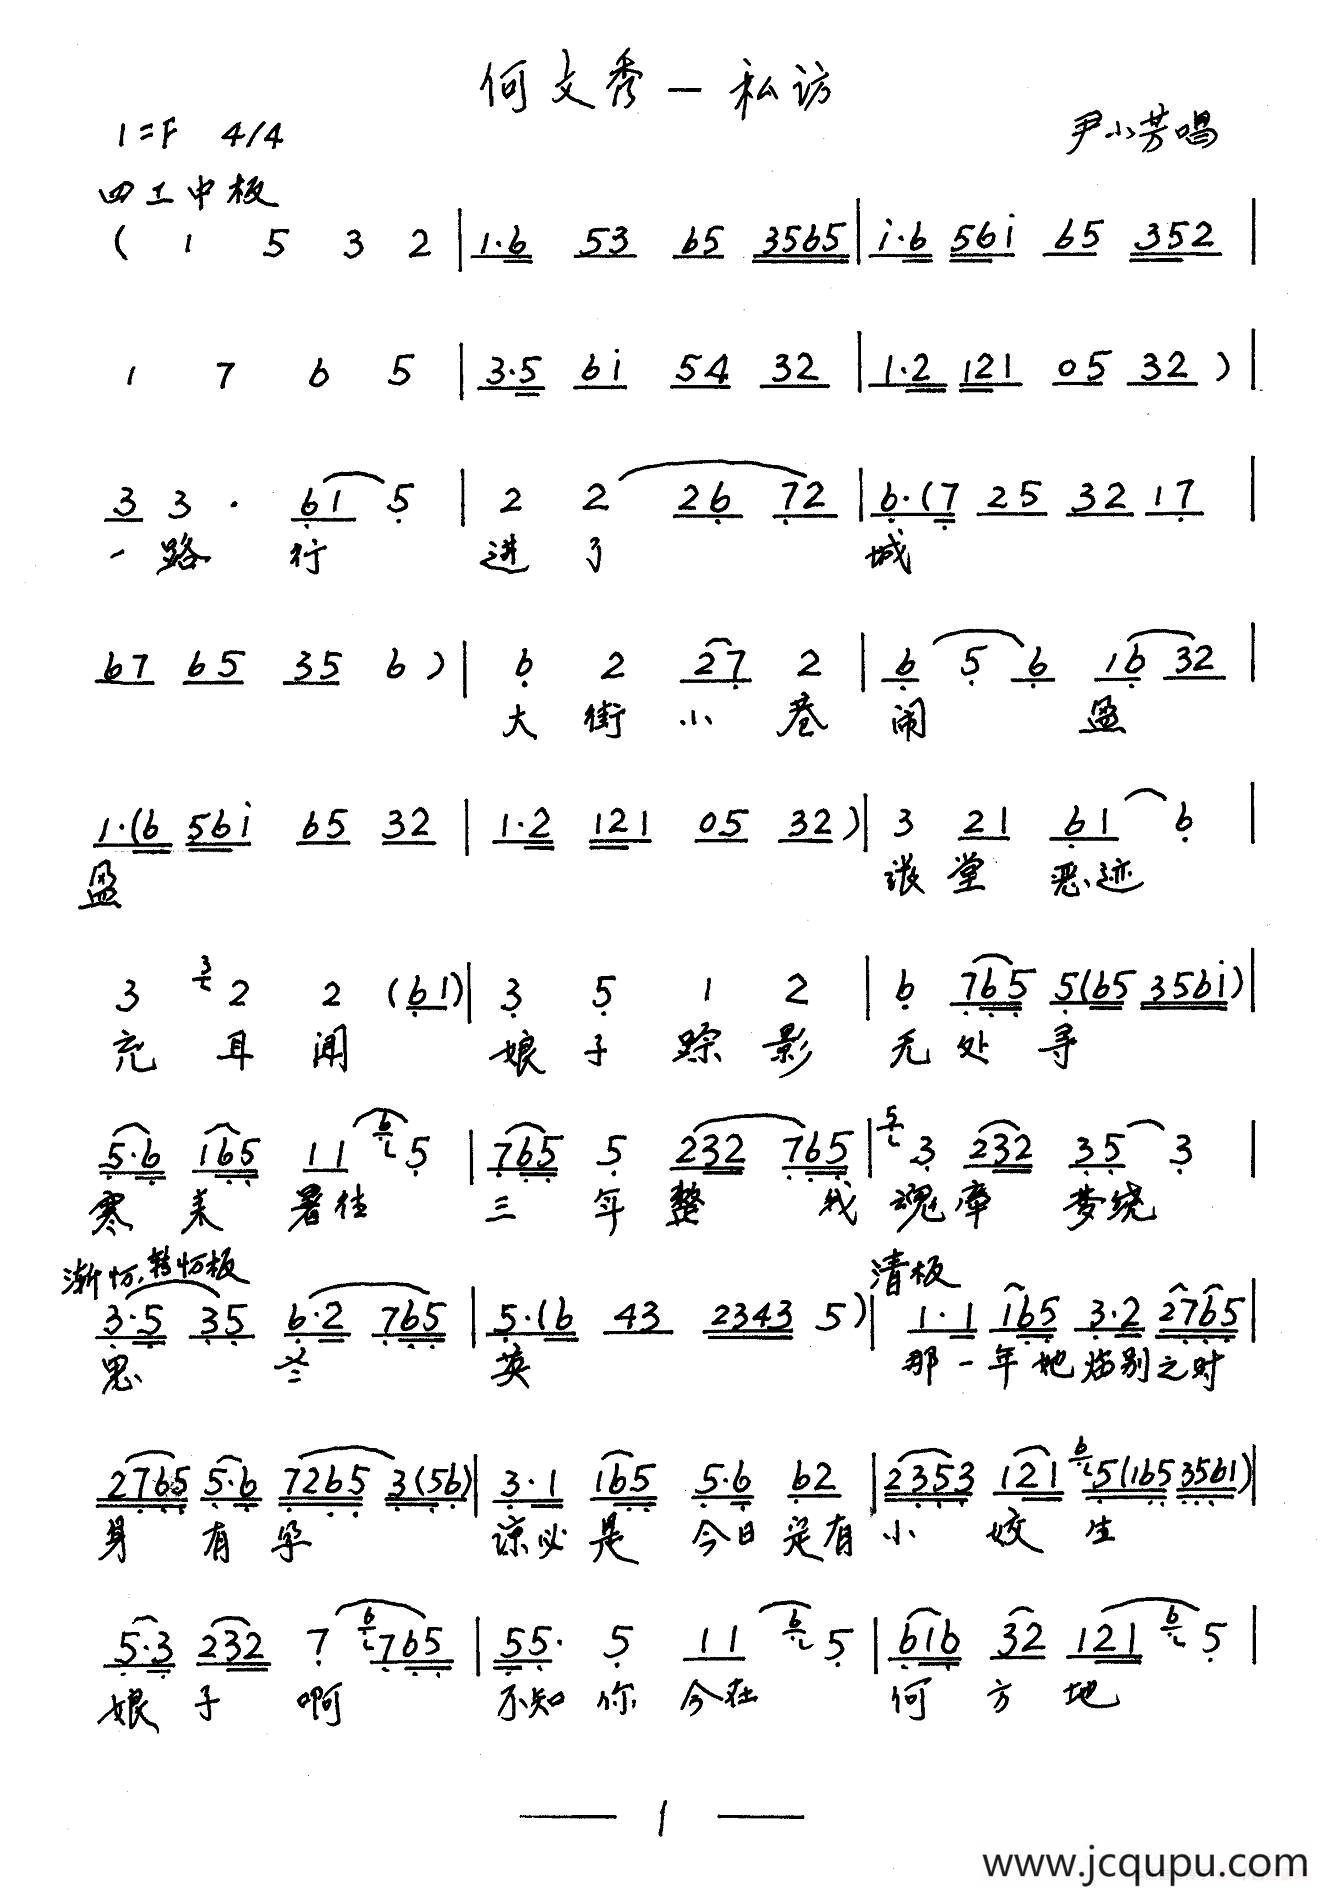 何文秀—私访
1=F 4/4
尹小芳唱
四工中板
( 1 5 3 2 | 1·6 53 65 3565 | i·6 56i 65 352 |
1 7 6 5 | 3·5 6i 54 32 | 1·2 121 05 32 ) |
3 3 · 61 5 | 2 2 26 72 | 6·(7 25 32 17 |
一 路 行 进 了 城
67 65 35 6 ) | 6 2 27 2 | 6 5 6 16 32 |
大 街 小 巷 闹 盈
1·(6 56i 65 32 | 1·2 121 05 32 ) | 3 21 61 6 |
盈 张 堂 恶 迹
3 3 2 2 (61) | 3 5 1 2 | 6 765 5(65 356i) |
充 耳 闻 娘 子 踪 影 无 处 寻
5·6 165 11 6 5 | 765 5 232 765 | 5 3 232 35 3 |
寒 来 暑往 三 年 整 我 魂 牵 梦绕
渐慢,转慢板
清板
3·5 35 6·2 765 | 5·(6 43 2343 5 ) | 1·1 165 3·2 2765 |
思 兰 英 那一年她临别之时
2765 5·6 7265 3(56) | 3·1 165 5·6 62 | 2353 121 6 5(165 3561) |
身 有 孕 谅必是 今日定有 小 姣 生
5·3 232 7 6 765 | 55· 5 11 6 5 | 616 32 121 6 5 |
娘 子 啊 不知 你 今在 何 方 地
— 1 —
www.jcqupu.com